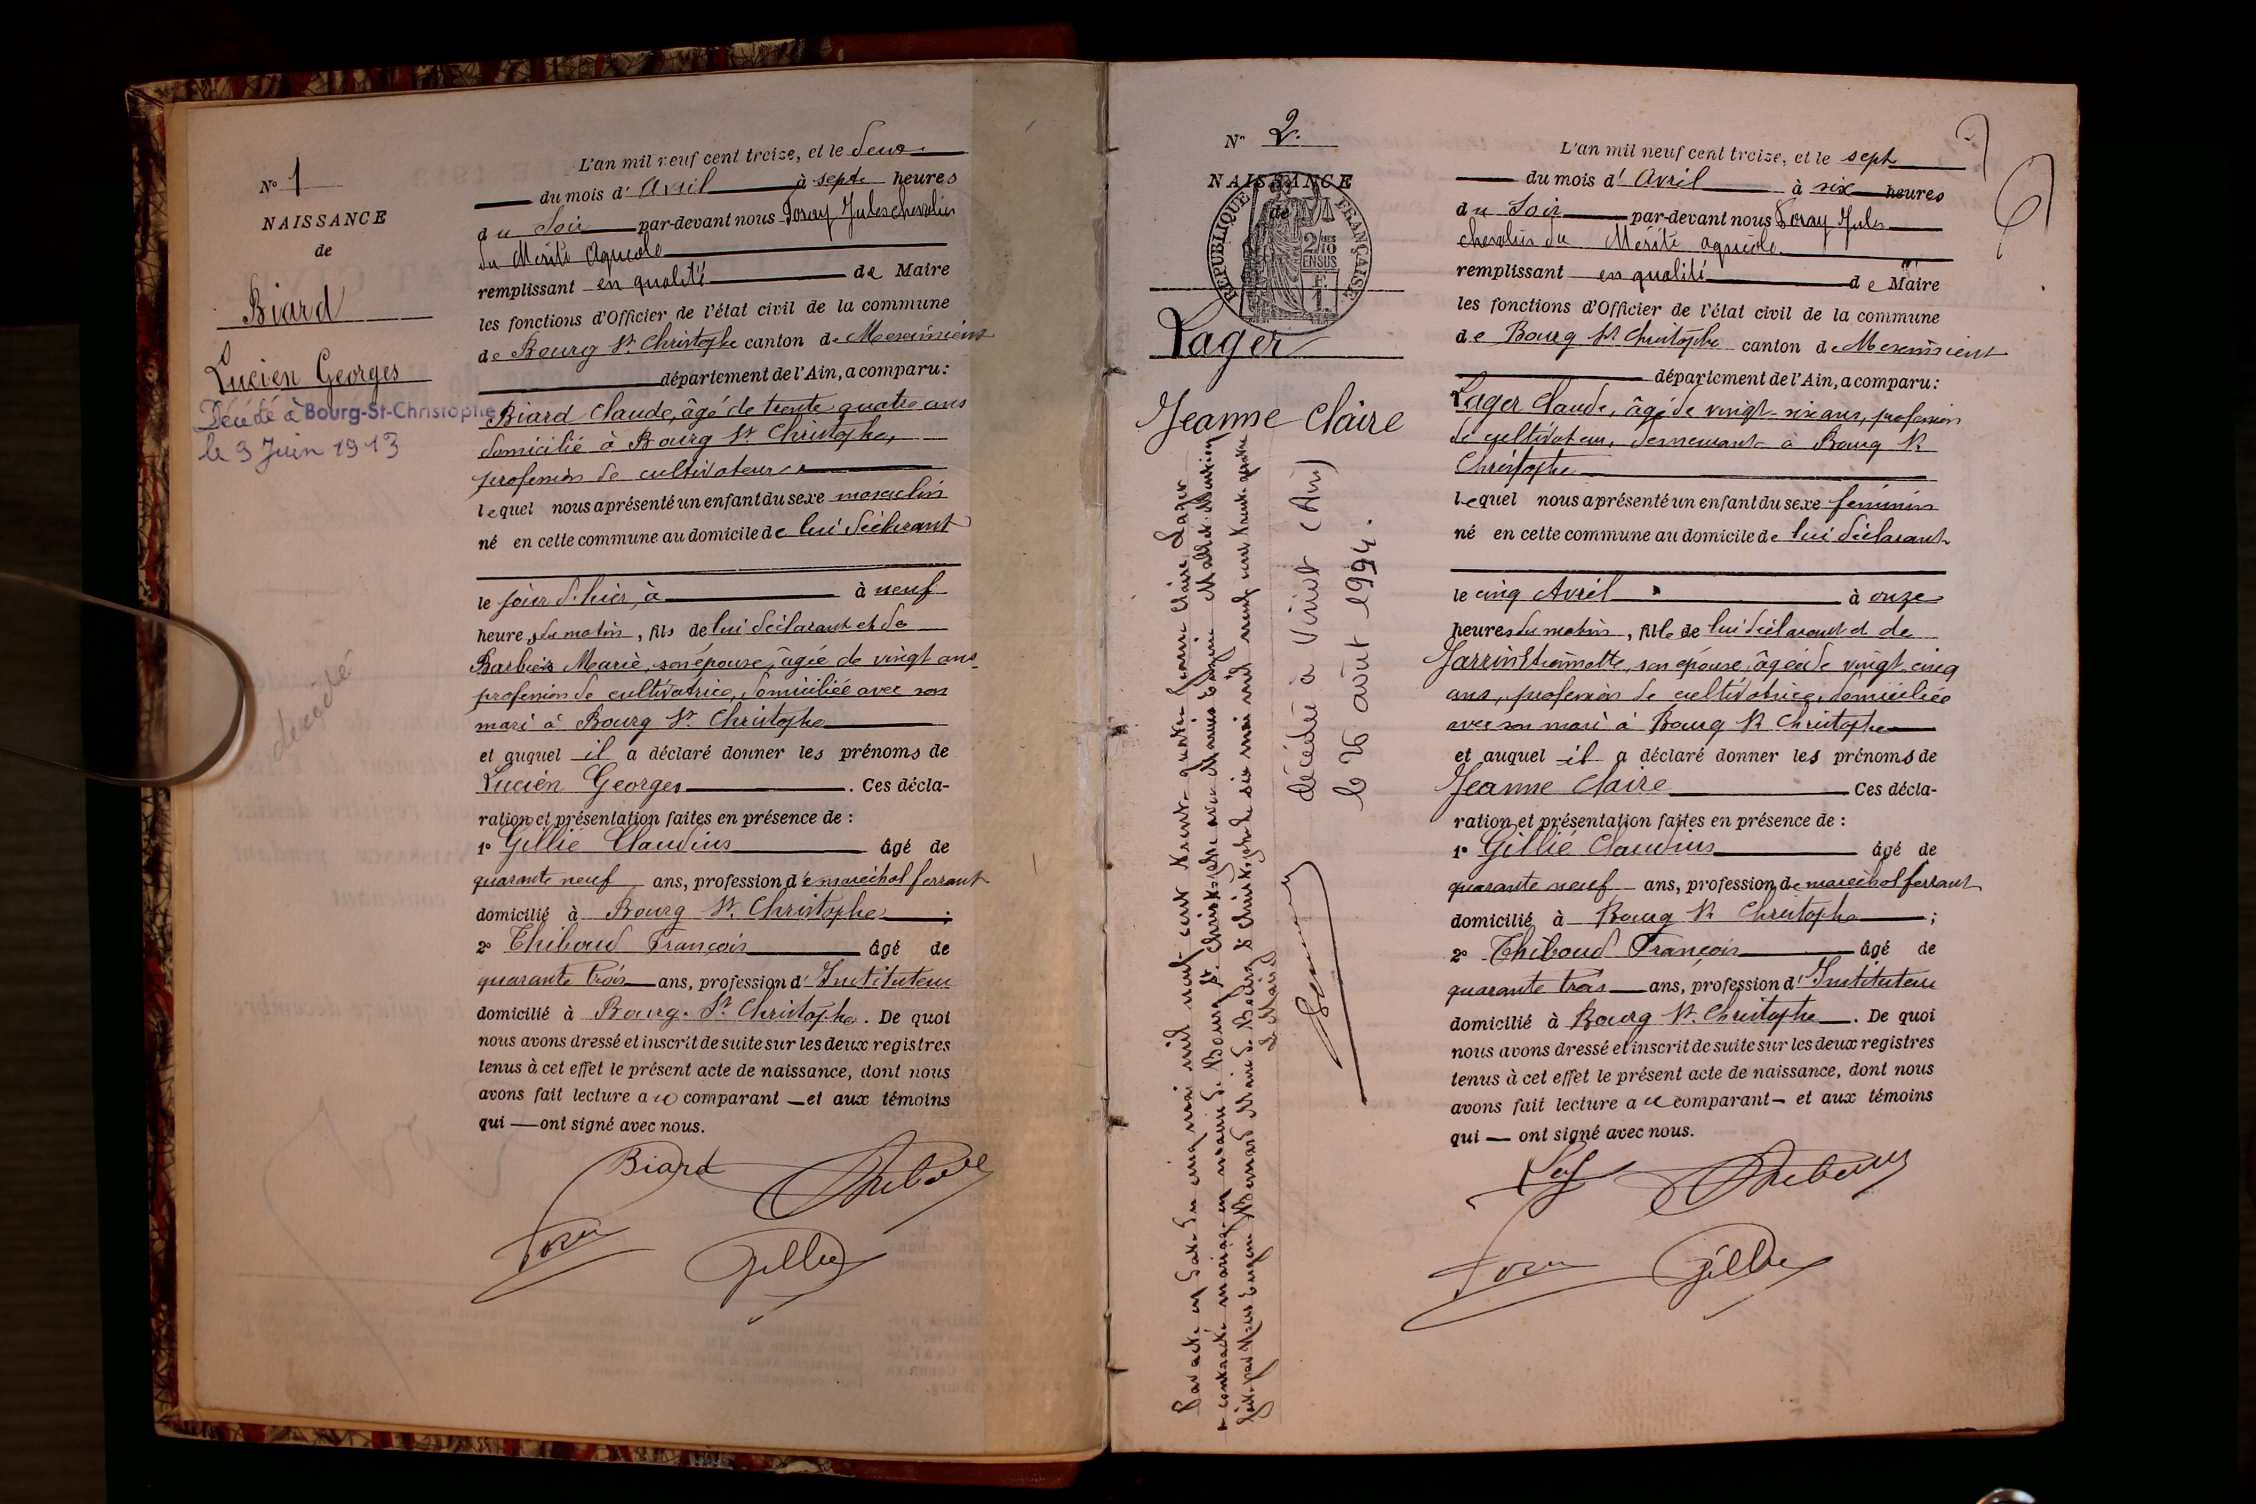 N° 1
NAISSANCE
de
Biard
Lucien Georges
Décédé à Bourg-St-Christophe
le 3 Juin 1913
décédé
L'an mil neuf cent treize, et le deux
du mois d'Avril à sept heures
du Soir par-devant nous Poray Jules chevalier
du Mérite Agricole
remplissant en qualité de Maire
les fonctions d'Officier de l'état civil de la commune
de Bourg St Christophe canton de Meximieux
département de l'Ain, a comparu :
Biard Claude, âgé de trente quatre ans
domicilié à Bourg St Christophe,
profession de cultivateur
lequel nous a présenté un enfant du sexe masculin
né en cette commune au domicile de lui déclarant
le jour d'hier, à à neuf
heures du matin, fils de lui déclarant et de
Barbier Marie, son épouse, âgée de vingt ans
profession de cultivatrice, domiciliée avec son
mari à Bourg St Christophe
et auquel il a déclaré donner les prénoms de
Lucien Georges . Ces décla-
ration et présentation faites en présence de :
1° Gillié Claudius âgé de
quarante neuf ans, profession de maréchal ferrant
domicilié à Bourg St Christophe ;
2° Thiboud François âgé de
quarante trois ans, profession d'Instituteur
domicilié à Bourg St Christophe . De quoi
nous avons dressé et inscrit de suite sur les deux registres
tenus à cet effet le présent acte de naissance, dont nous
avons fait lecture au comparant et aux témoins
qui ont signé avec nous.
Biard Thiboud
Gillié
N° 2.
NAISSANCE
de
RÉPUBLIQUE FRANÇAISE
2/10 EN SUS
Lager
Jeanne Claire
Par acte en date du cinq mai mil neuf cent trente quatre Jeanne Claire Lager
a contracté mariage en mairie de Bourg St Christophe avec Marius Eugène
décédée à Viriat (Ain)
le 26 août 1994.
Le Maire
L'an mil neuf cent treize, et le sept
du mois d'Avril à six heures
du Soir par-devant nous Poray Jules
chevalier du Mérite agricole
remplissant en qualité de Maire
les fonctions d'Officier de l'état civil de la commune
de Bourg St Christophe canton de Meximieux
département de l'Ain, a comparu :
Lager Claude, âgé de vingt-six ans, profession
de cultivateur, demeurant à Bourg St
Christophe
lequel nous a présenté un enfant du sexe féminin
né en cette commune au domicile de lui déclarant
le cinq Avril à onze
heures du matin, fille de lui déclarant et de
Jarrin Etiennette, son épouse, âgée de vingt cinq
ans, profession de cultivatrice, domiciliée
avec son mari à Bourg St Christophe
et auquel il a déclaré donner les prénoms de
Jeanne Claire Ces décla-
ration et présentation faites en présence de :
1° Gillié Claudius âgé de
quarante neuf ans, profession de maréchal ferrant
domicilié à Bourg St Christophe ;
2° Thiboud François âgé de
quarante trois ans, profession d'Instituteur
domicilié à Bourg St Christophe . De quoi
nous avons dressé et inscrit de suite sur les deux registres
tenus à cet effet le présent acte de naissance, dont nous
avons fait lecture au comparant et aux témoins
qui ont signé avec nous.
Thiboud
Gillié